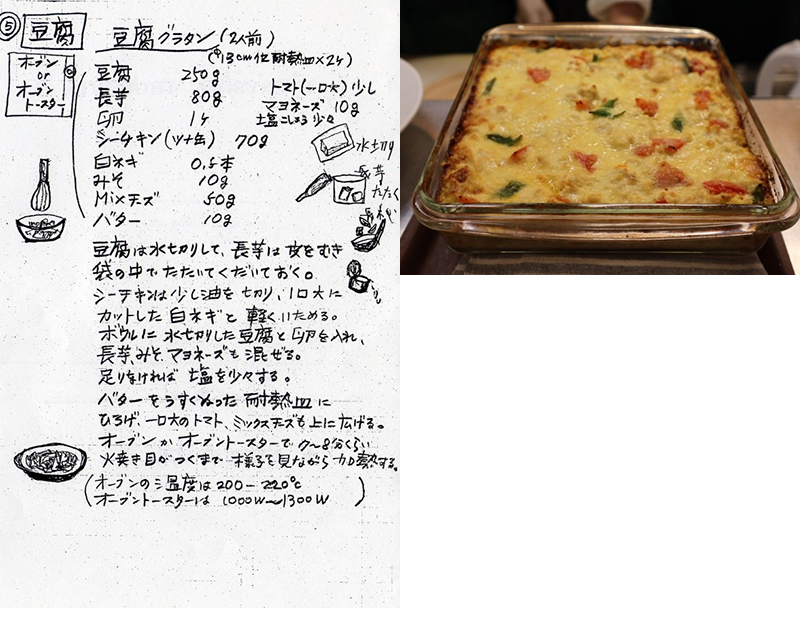 ⑤ 豆腐
豆腐グラタン(2人前)
(中13cm位耐熱皿×2ヶ)
オーブン
or
オーブン
トースター
豆腐 250g
長芋 80g
卵 1ヶ
シーチキン(ツナ缶) 70g
白ネギ 0,5本
みそ 10g
Mixチーズ 50g
バター 10g
トマト(一口大)少し
マヨネーズ 10g
塩こしょう 少々
水切り
芋
たたく
豆腐は水切りして、長芋は皮をむき
袋の中でたたいてくだいておく。
シーチキンは少し油を切り、1口大に
カットした白ネギと軽くいためる。
ボウルに水切りした豆腐と卵を入れ、
長芋、みそ、マヨネーズも混ぜる。
足りなければ塩を少々する。
バターをうすくぬった耐熱皿に
ひろげ、一口大のトマト、ミックスチーズも上に広げる。
オーブンかオーブントースターで7〜8分くらい
火焼き目がつくまで様子を見ながら加熱する。
(オーブンの温度は200-220℃
オーブントースターは1000W〜1300W)